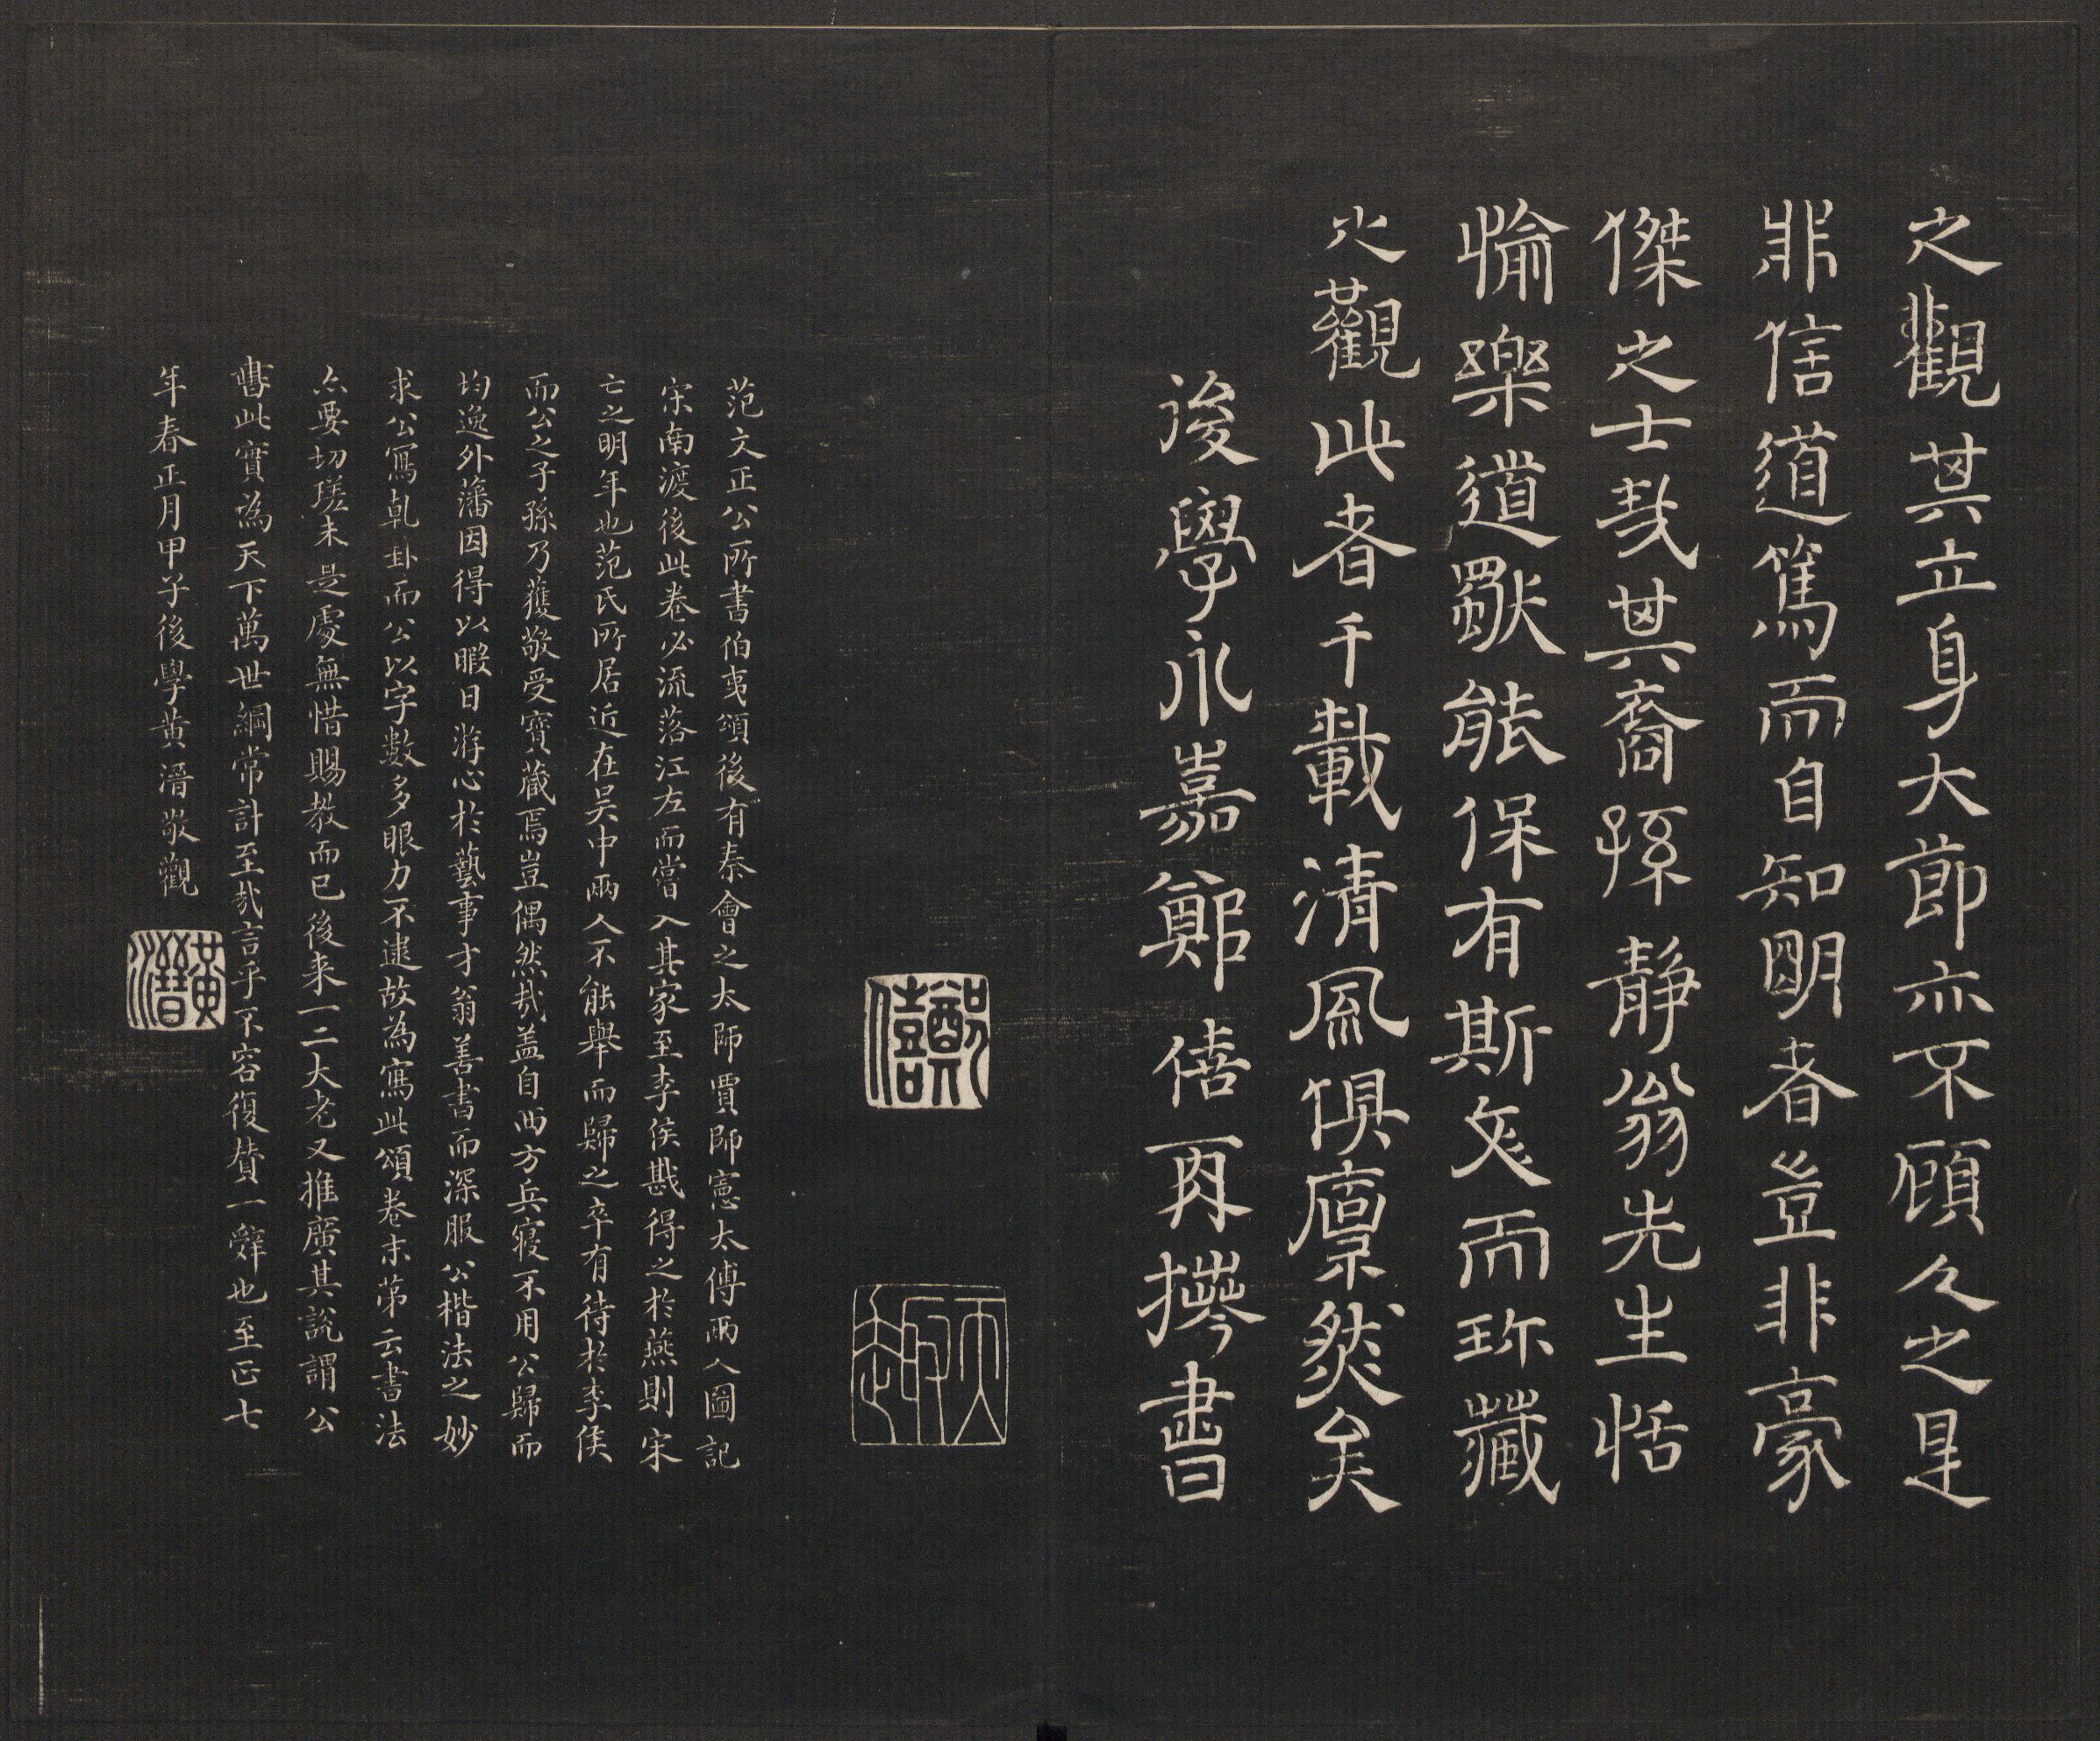 之觀其立身大節亦不顧人之是
非信道篤而自知明者豈非豪
傑之士哉其裔孫靜翁先生恬
愉樂道猷能保有斯文而珎藏
之觀此者千載清風俱凛然矣
後學永嘉鄭僖再攃書
鄭僖
范文正公所書伯夷頌後有秦會之太師賈師憲太傅兩人圖記
宋南渡後此卷必流落江左而嘗入其家至李侯戡得之於燕則宋
亡之明年也范氏所居近在吴中兩人不能舉而歸之卒有待於李侯
而公之子孫乃獲敬受寶藏焉豈偶然哉盖自西方兵寢不用公歸而
均逸外藩因得以暇日游心於藝事才翁善書而深服公楷法之妙
求公寫乹卦而公以字數多眼力不逮故為寫此頌卷末苐云書法
亦要切瑳未是處無惜賜教而已後来一二大老又推廣其説謂公
書此實為天下萬世綱常計至哉言乎不容復賛一辤也至正七
年春正月甲子後學黄溍敬觀
黄溍